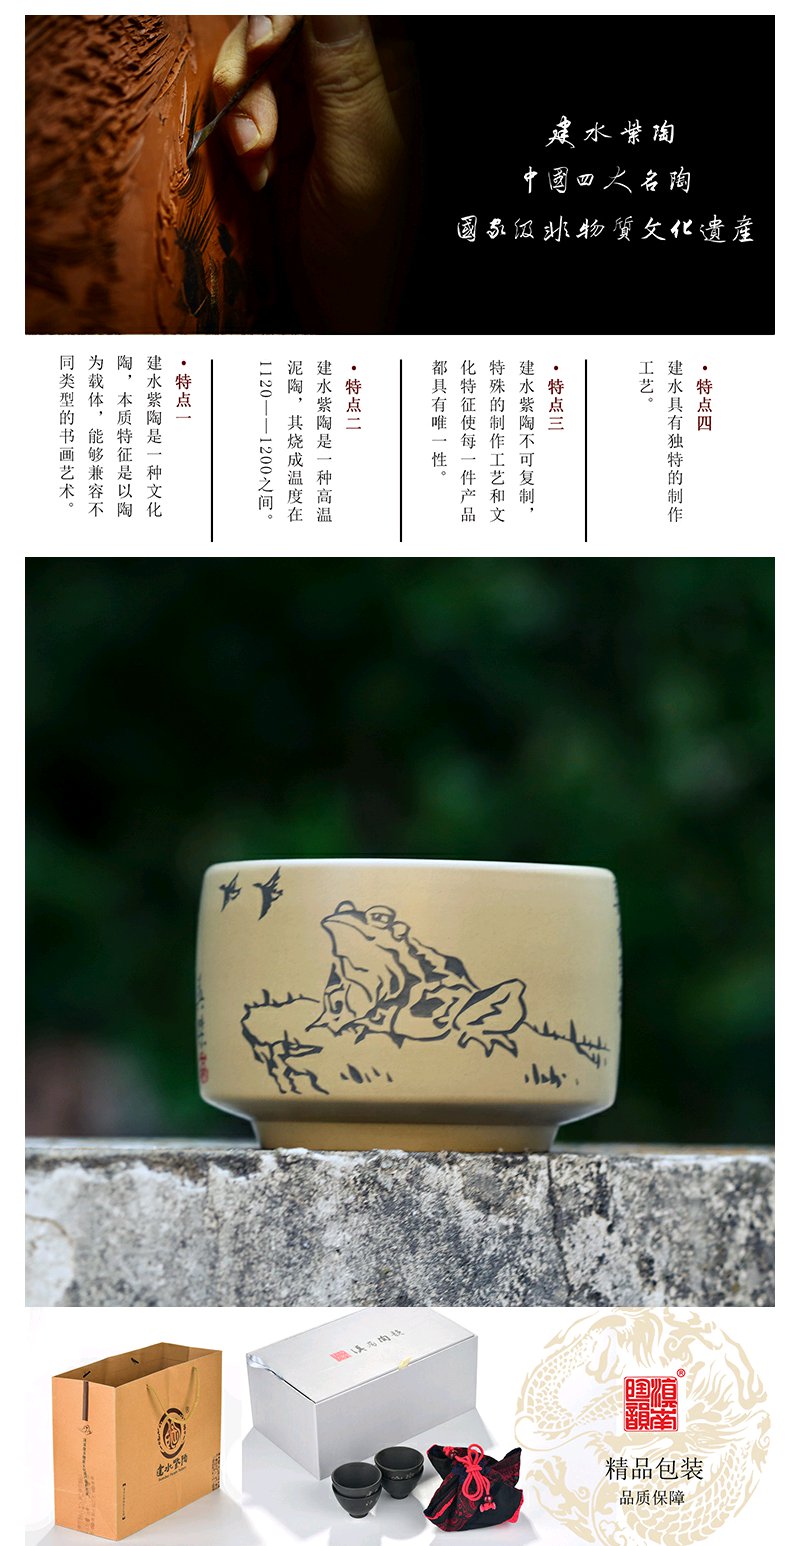 建水紫陶
中國四大名陶
國家级非物質文化遺産
•特点一
建水紫陶是一种文化
陶，本质特征是以陶
为载体，能够兼容不
同类型的书画艺术。
•特点二
建水紫陶是一种高温
泥陶，其烧成温度在
1120——1200之间。
•特点三
建水紫陶不可复制，
特殊的制作工艺和文
化特征使每一件产品
都具有唯一性。
•特点四
建水具有独特的制作
工艺。
建水紫陶
滇南陶韻
®
滇南陶韻
精品包装
品质保障